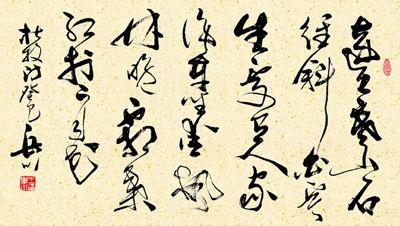 遠上寒山石
径斜白雲
生處有人家
停車坐愛楓
林晚霜葉
红於二月花
杜牧诗癸巳